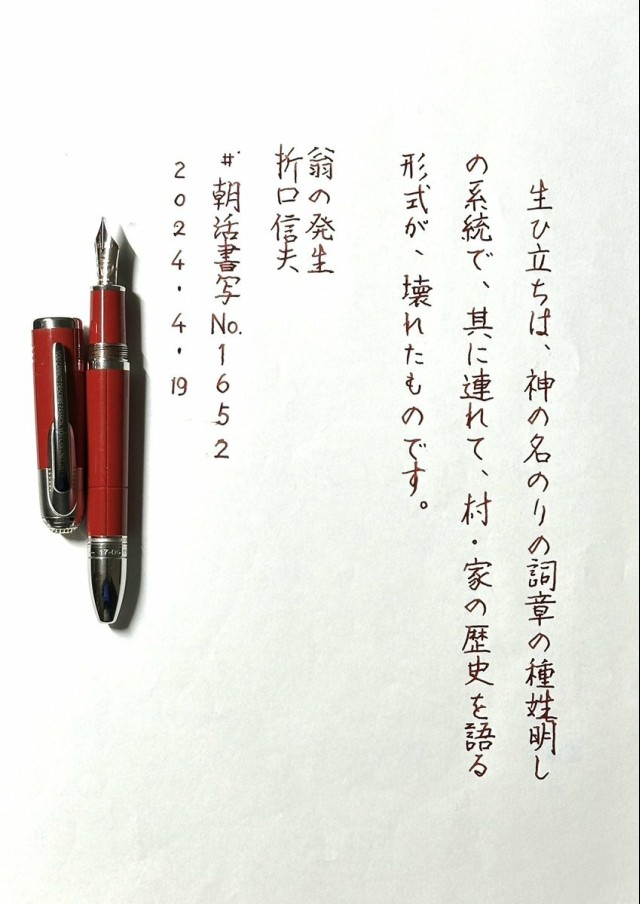 生ひ立ちは、神の名のりの詞章の種姓明し
の系統で、其に連れて、村・家の歴史を語る
形式が、壊れたものです。
翁の発生
折口信夫
#朝活書写No.1652
2024.4.19